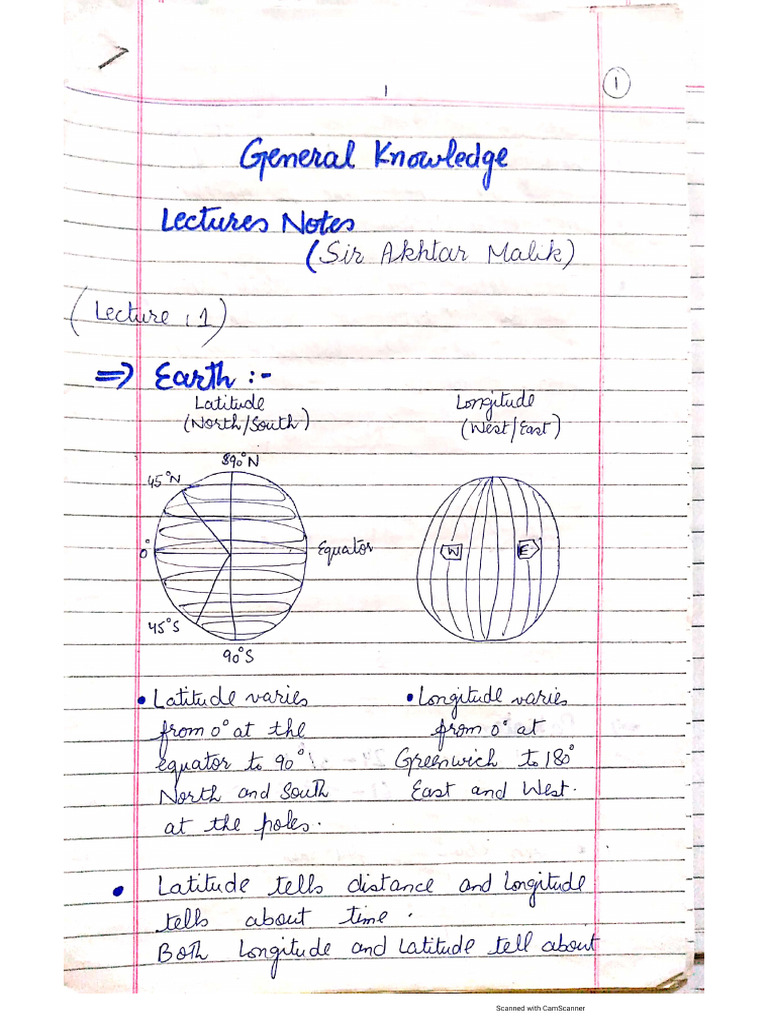 1
1
General Knowledge
Lectures Notes
(Sir Akhtar Malik)
(Lecture :1)
⇒ Earth :-
Latitude
(North/South)
Longitude
(West/East)
90°N
45°N
0°
Equator
45°S
90°S
W
E
• Latitude varies
from 0° at the
equator to 90°
North and South
at the poles.
• Longitude varies
from 0° at
Greenwich to 180°
East and West.
• Latitude tells distance and longitude
tells about time.
Both Longitude and Latitude tell about
Scanned with CamScanner